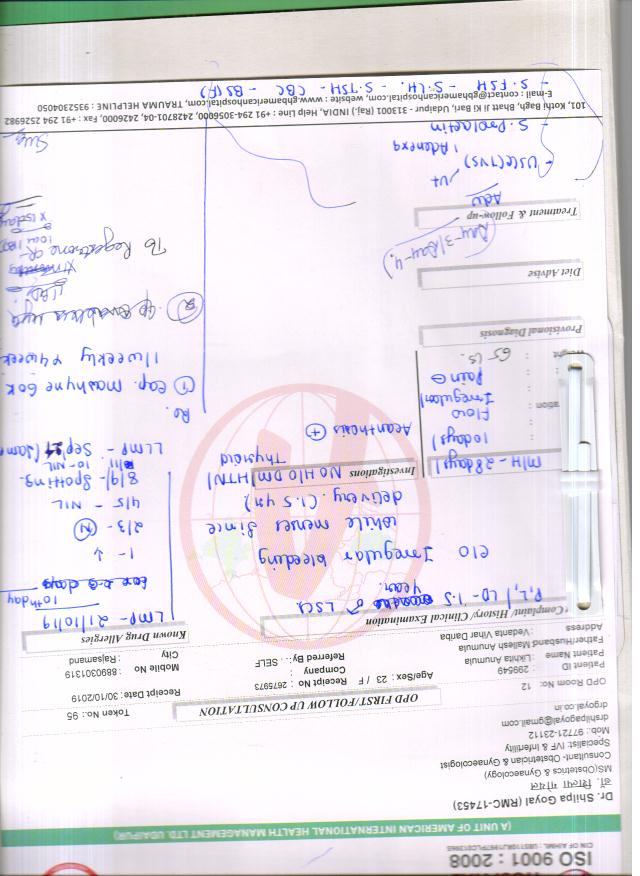 ISO 9001 : 2008
CIN OF AHIML :
(A UNIT OF AMERICAN INTERNATIONAL HEALTH MANAGEMENT LTD. UDAIPUR)
Dr. Shilpa Goyal (RMC-17453)
डॉ. शिल्पा गोयल
MS(Obstetrics & Gynaecology)
Consultant- Obstetrician & Gynaecologist
Specialist: IVF & Infertility
Mob.: 97721-23112
drshilpagoyal@gmail.com
drgoyal.co.in
OPD Room No: 12
OPD FIRST/FOLLOW UP CONSULTATION
Token No.: 95
Patient ID : 299549
Age/Sex : 23 / F
Receipt No : 2675973
Receipt Date: 30/10/2019
Patient Name : Likhita Anumula
Company :
Mobile No : 8890301319
Father/Husband Mallesh Anumula
Referred By: . SELF
City : Rajsamand
Address : Vedanta Vihar Dariba
Complaint/ History/ Clinical Examination
Known Drug Allergies
P1L1 / LD - 1.5 year ♂ LSCS
LMP - 21/10/19
10th day
c/o Irregular bleeding
while menses since
delivery. (1.5 yr)
1 - ↓
2/3 - (N)
4/5 - NIL
8/9 - spotting
10 - NIL
LLMP - Sep
Investigations
No H/O DM/HTN/
Thyroid
Acanthosis (+)
M/H - 28 days/
10 days/
Flow
Irregular/
Pain
65
Rx.
(1) Cap. 60K
1/weekly x 4 week
(2)
Tb Regestrone CR
10
x 15 days
Provisional Diagnosis
Diet Advise
(Day-3/Day-4)
Treatment & Follow-up
Adv
- USG (TVS)
Ut
Adenexa
- S. Prolactin
- S. FSH - S. LH. - S. TSH - CBC - BS(F)
101, Kothi Bagh, Bhatt Ji Ki Bari, Udaipur - 313001 (Raj.) INDIA, Help Line : +91 294-3056000, 2428701-04, 2426000, Fax : +91 294 2526982
E-mail : contact@gbhamericanhospital.com, website : www.gbhamericanhospital.com, TRAUMA HELPLINE : 9352304050